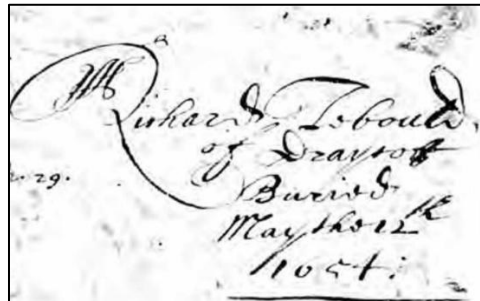 Mr
Richard Tebould
of Drayton
Buried
May the 12th
1654:
29.